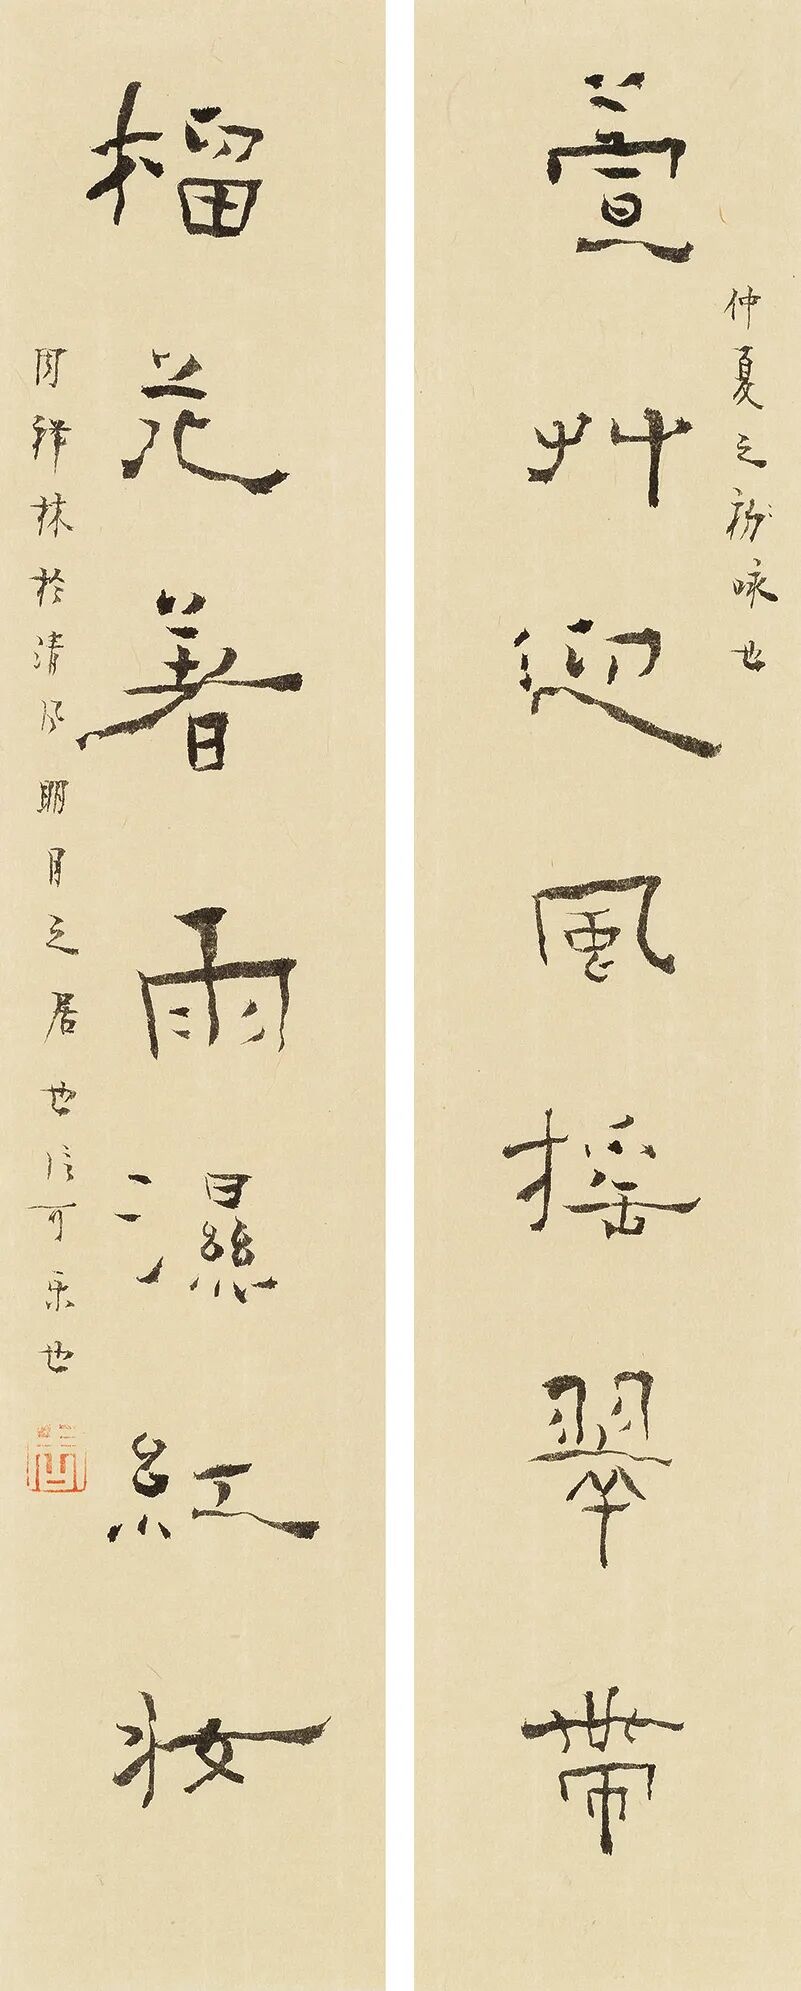 萱艸迎風搖翠帶
仲夏之初咏也
榴花著雨濕紅妝
周祥林於清風明月之居也信可樂也